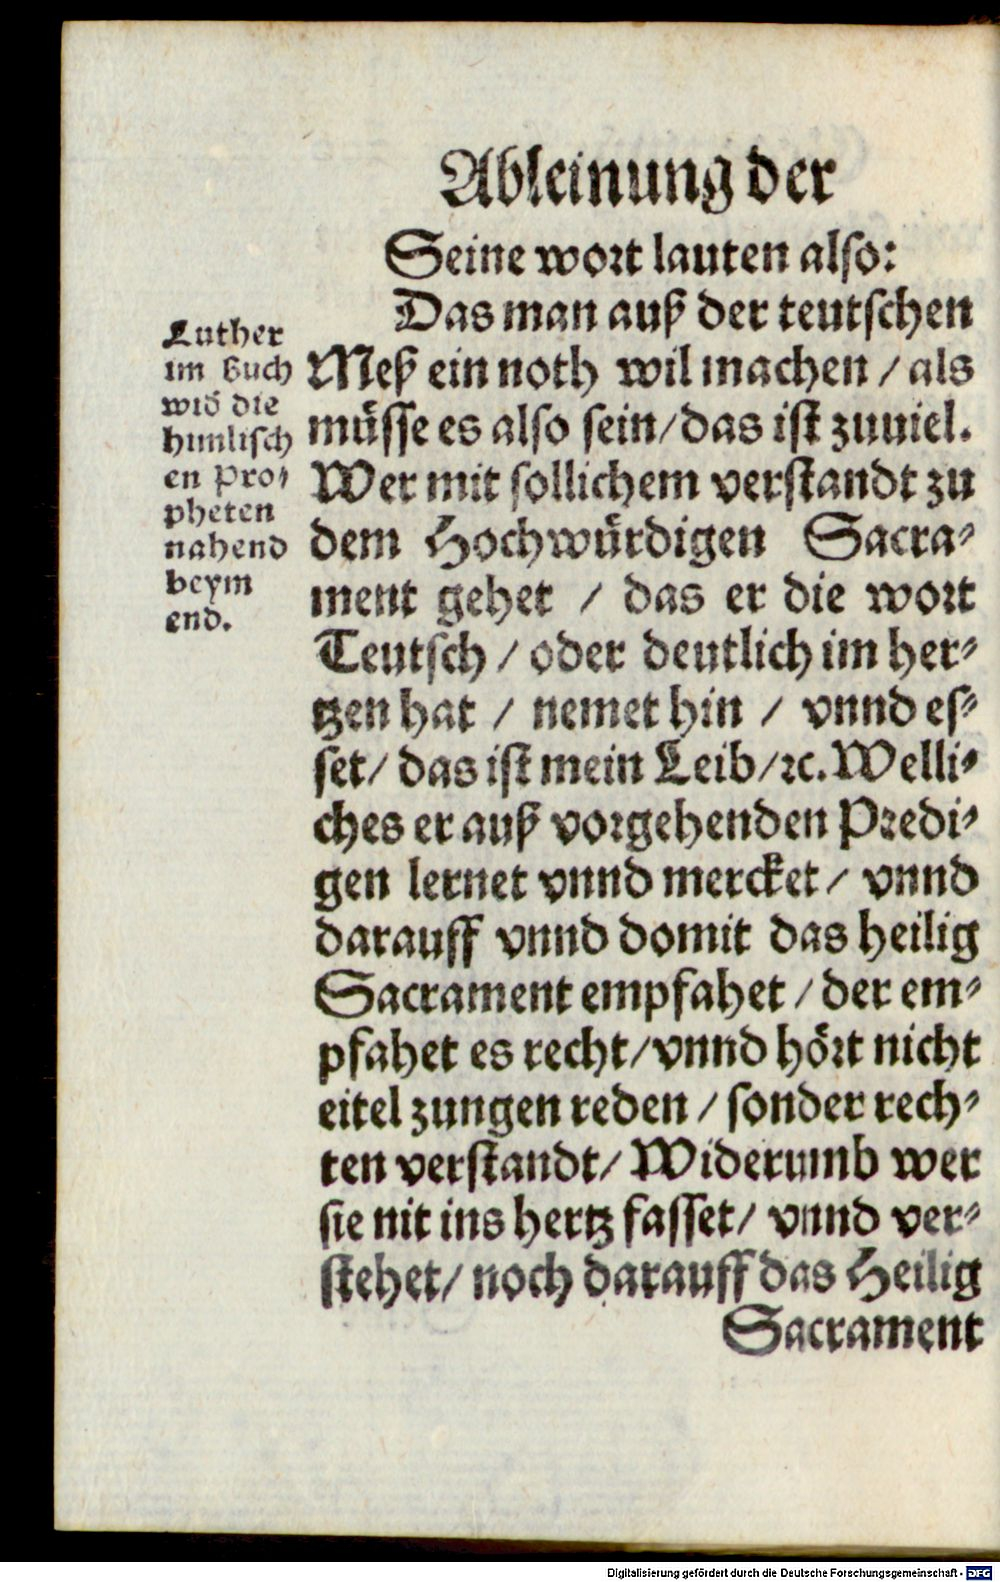 Ableinung der
Seine wort lauten also:
Das man auß der teutschen
Meß ein noth wil machen / als
müsse es also sein / das ist zuuiel.
Wer mit sollichem verstandt zu
dem Hochwürdigen Sacra-
ment gehet / das er die wort
Teutsch / oder deutlich im her-
tzen hat / nemet hin / vnnd es-
set / das ist mein Leib / ꝛc. Welli-
ches er auß vorgehenden Predi-
gen lernet vnnd mercket / vnnd
darauff vnnd domit das heilig
Sacrament empfahet / der em-
pfahet es recht / vnnd hört nicht
eitel zungen reden / sonder rech-
ten verstandt / Widerumb wer
sie nit ins hertz fasset / vnnd ver-
stehet / noch darauff das Heilig
Sacrament
Luther
im Buch
wid die
himlisch
en Pro-
pheten
nahend
beym
end.
Digitalisierung gefördert durch die Deutsche Forschungsgemeinschaft - DFG